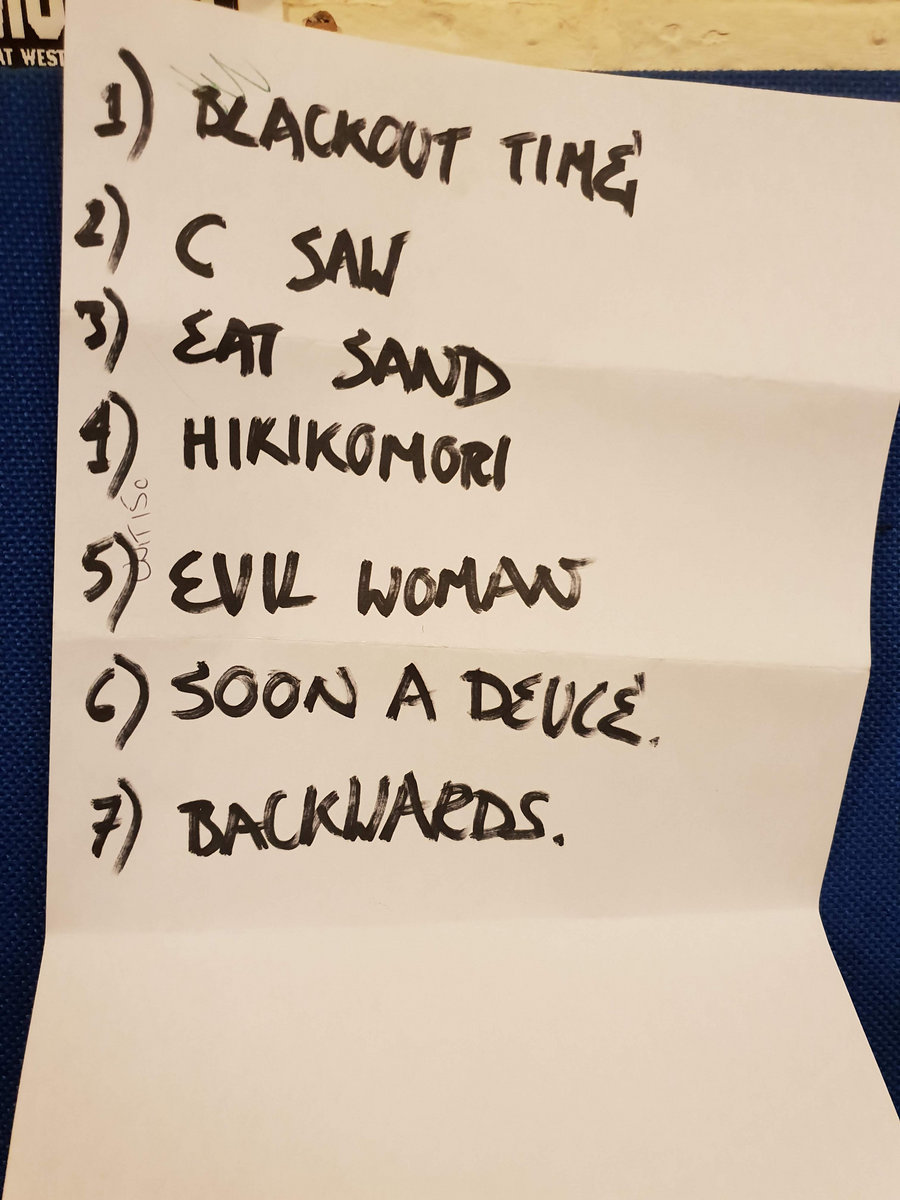 AT WEST
1) BLACKOUT TIME
2) C SAW
3) EAT SAND
4) HIKIKOMORI
5) EVIL WOMAN
6) SOON A DEUCE.
7) BACKWARDS.